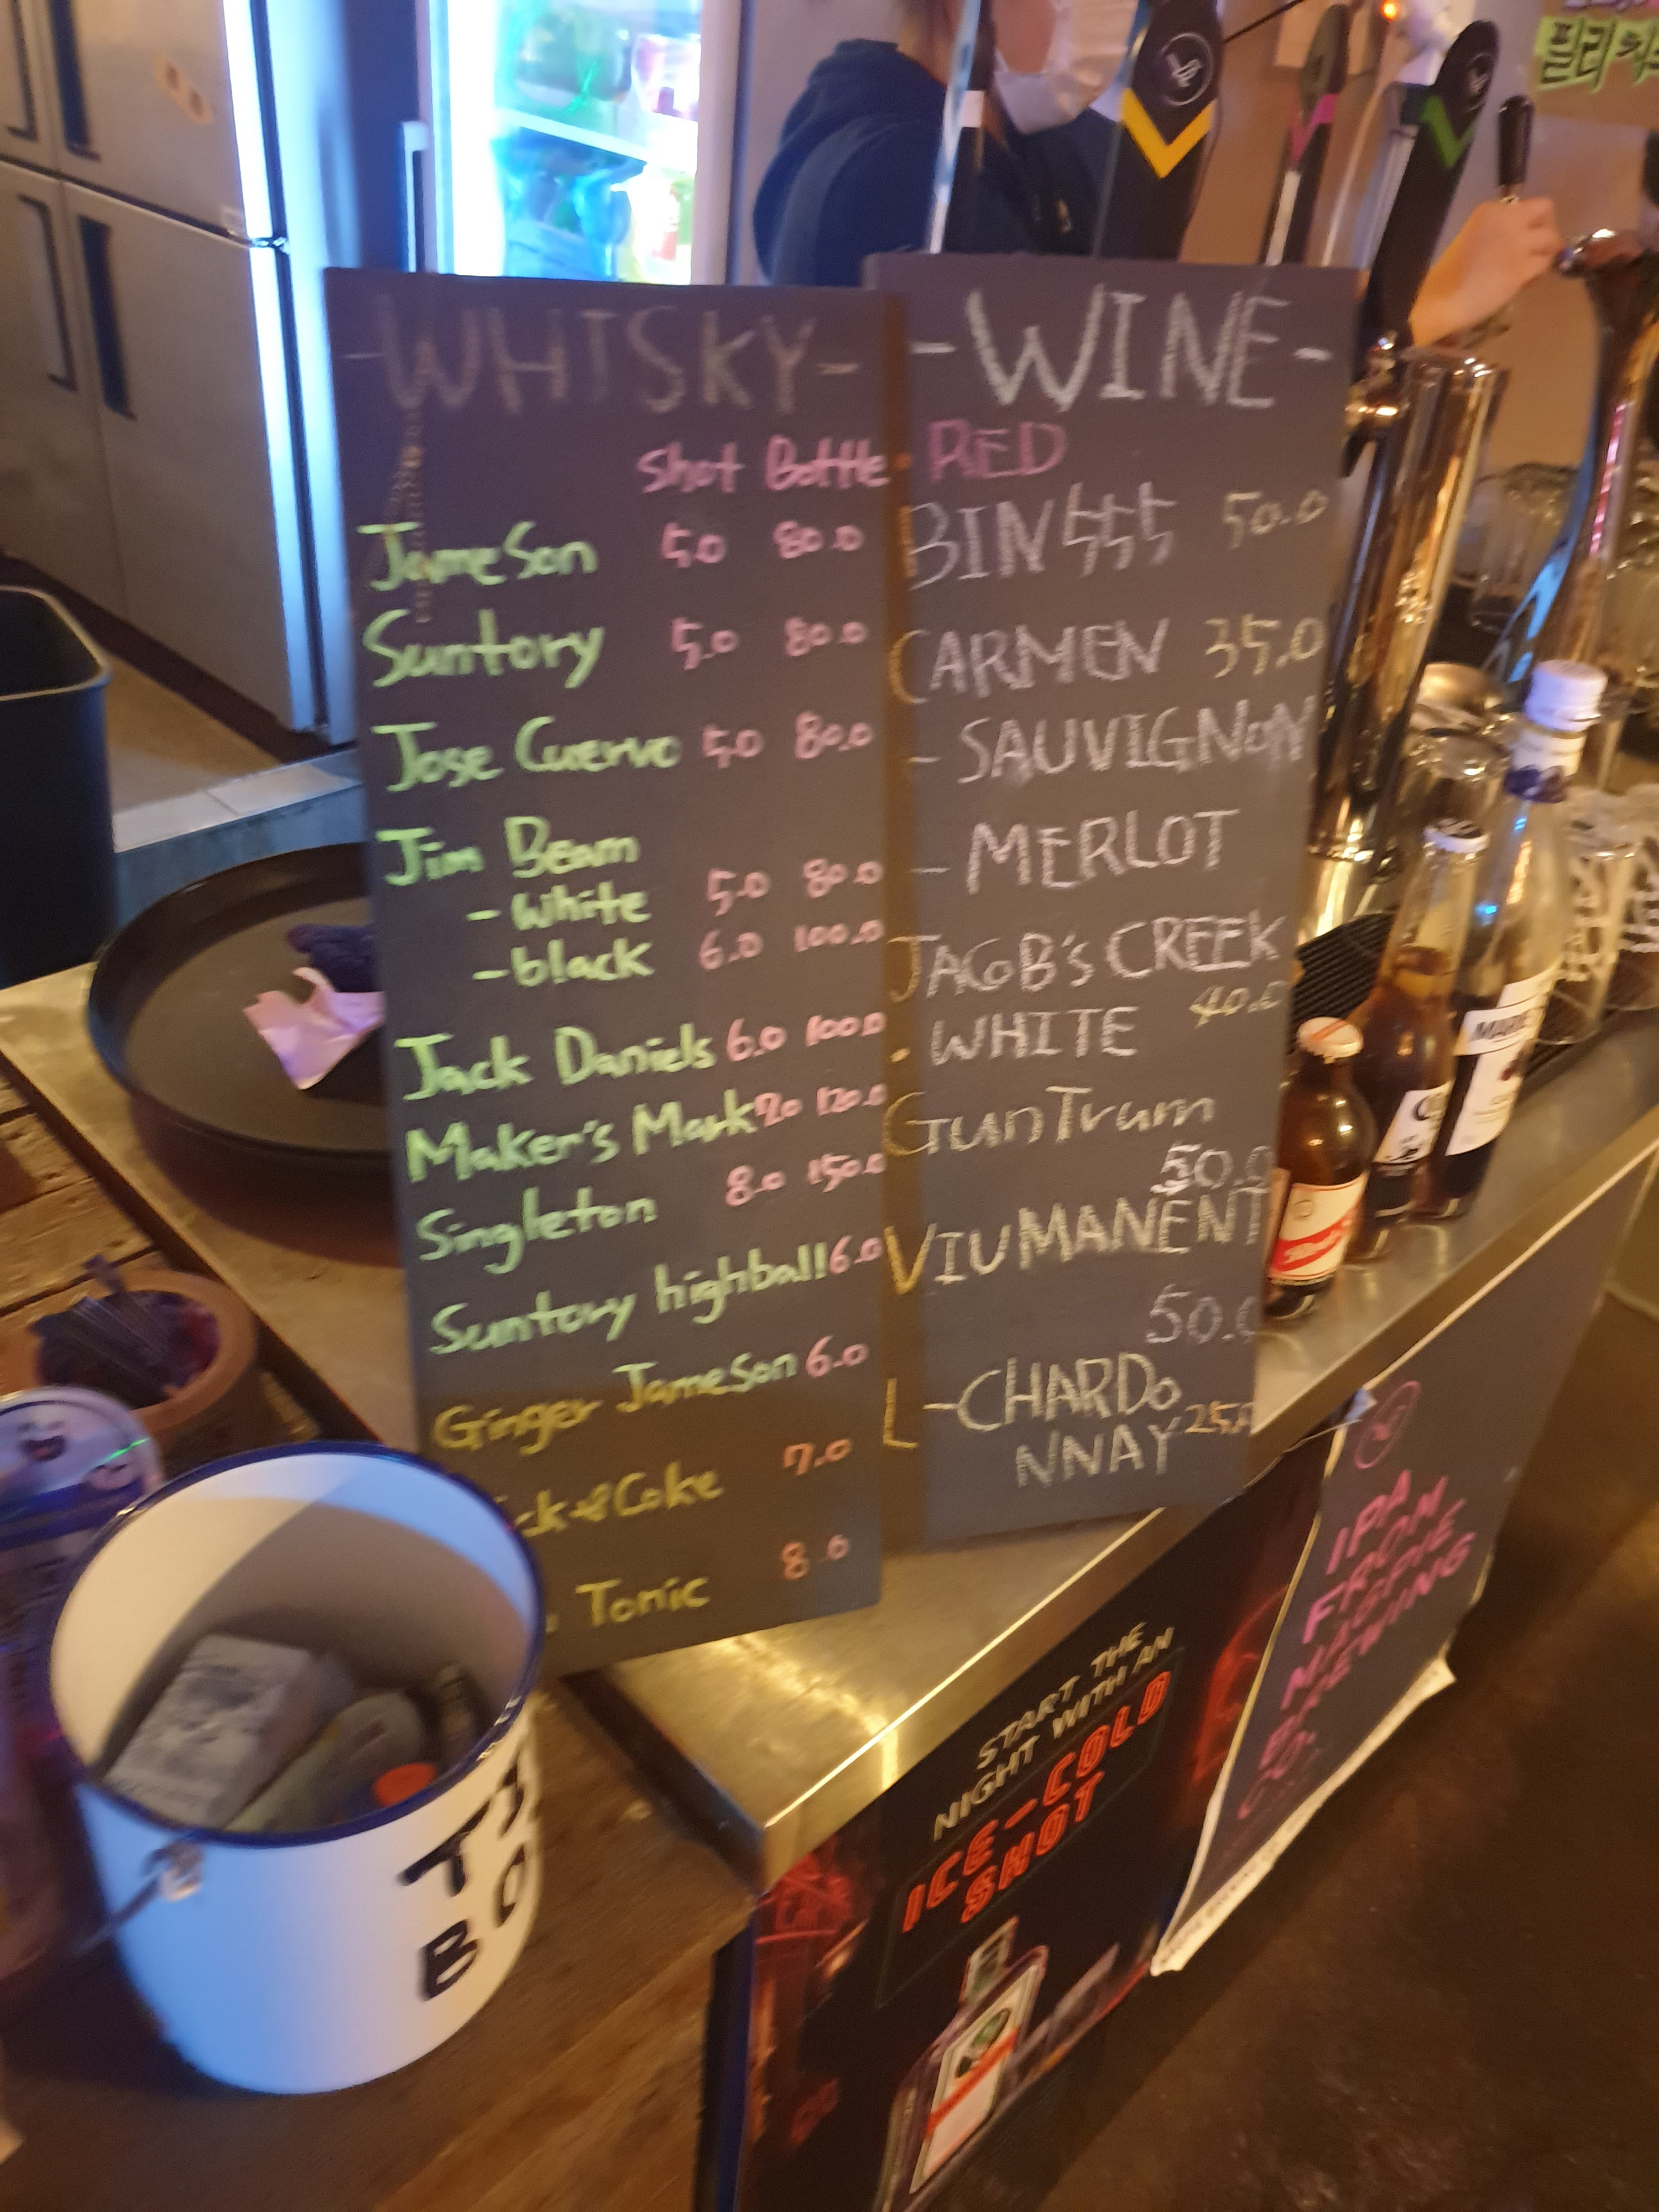 -WHISKY-
Shot Bottle
Jameson 5.0 80.0
Suntory 5.0 80.0
Jose Cuervo 5.0 80.0
Jim Beam
-White 5.0 80.0
-black 6.0 100.0
Jack Daniels 6.0 100.0
Maker's Mark 7.0 120.0
Singleton 8.0 150.0
Suntory highball 6.0
Ginger Jameson 6.0
ck & Coke 7.0
Tonic 8.0
-WINE-
• RED
BIN 555 50.0
CARMEN 35.0
- SAUVIGNON
- MERLOT
JACOB'S CREEK
40.0
• WHITE
GunTrum
50.0
VIUMANENT
50.0
L-CHARDO
NNAY 25.0
IPA
FROM
MAGPIE
BREWING
CO.
START THE
NIGHT WITH AN
ICE-COLD
SHOT